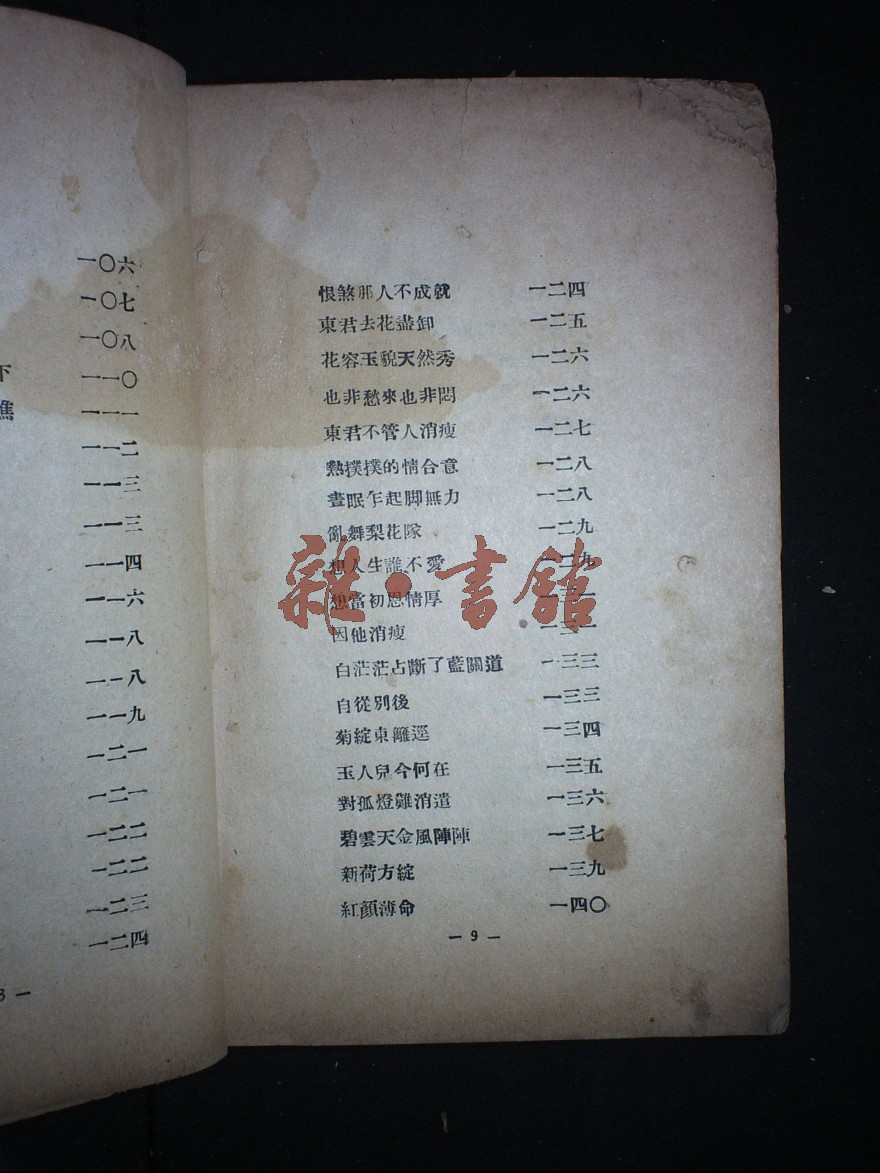 一〇六
一〇七
一〇八
下 一一〇
一一一
一一二
一一三
一一三
一一四
一一六
一一八
一一八
一一九
一二一
一二一
一二二
一二二
一二三
一二四
恨煞那人不成就 一二四
東君去花盡卸 一二五
花容玉貌天然秀 一二六
也非愁來也非悶 一二六
東君不管人消瘦 一二七
熱撲撲的情合意 一二八
晝眠乍起脚無力 一二八
亂舞梨花隊 一二九
想人生誰不愛 一二九
想當初恩情厚 一三一
因他消瘦 一三一
白茫茫占斷了藍關道 一三三
自從別後 一三三
菊綻東籬逕 一三四
玉人兒今何在 一三五
對孤燈難消遣 一三六
碧雲天金風陣陣 一三七
新荷方綻 一三九
紅顏薄命 一四〇
— 9 —
雜·書館